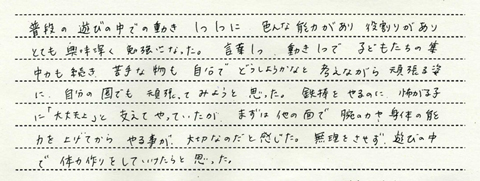 普段の遊びの中での動き 1つ1つに 色んな能力があり 役割りがあり
とても興味深く勉強になった。 言葉1つ 動き1つで 子どもたちの集
中力も続き 苦手な物も 自分で どうしようかなと 考えながら 頑張る姿
に、自分の園でも 頑張ってみようと思った。 鉄棒をやるのに、怖がる子
に「大丈夫よ」と 支えてやっていたが まずは他の面で 腕の力や身体の能
力を上げてから やる事が、大切なのだと感じた。 無理をさせず、遊びの中
で 体力作りをしていけたらと思った。